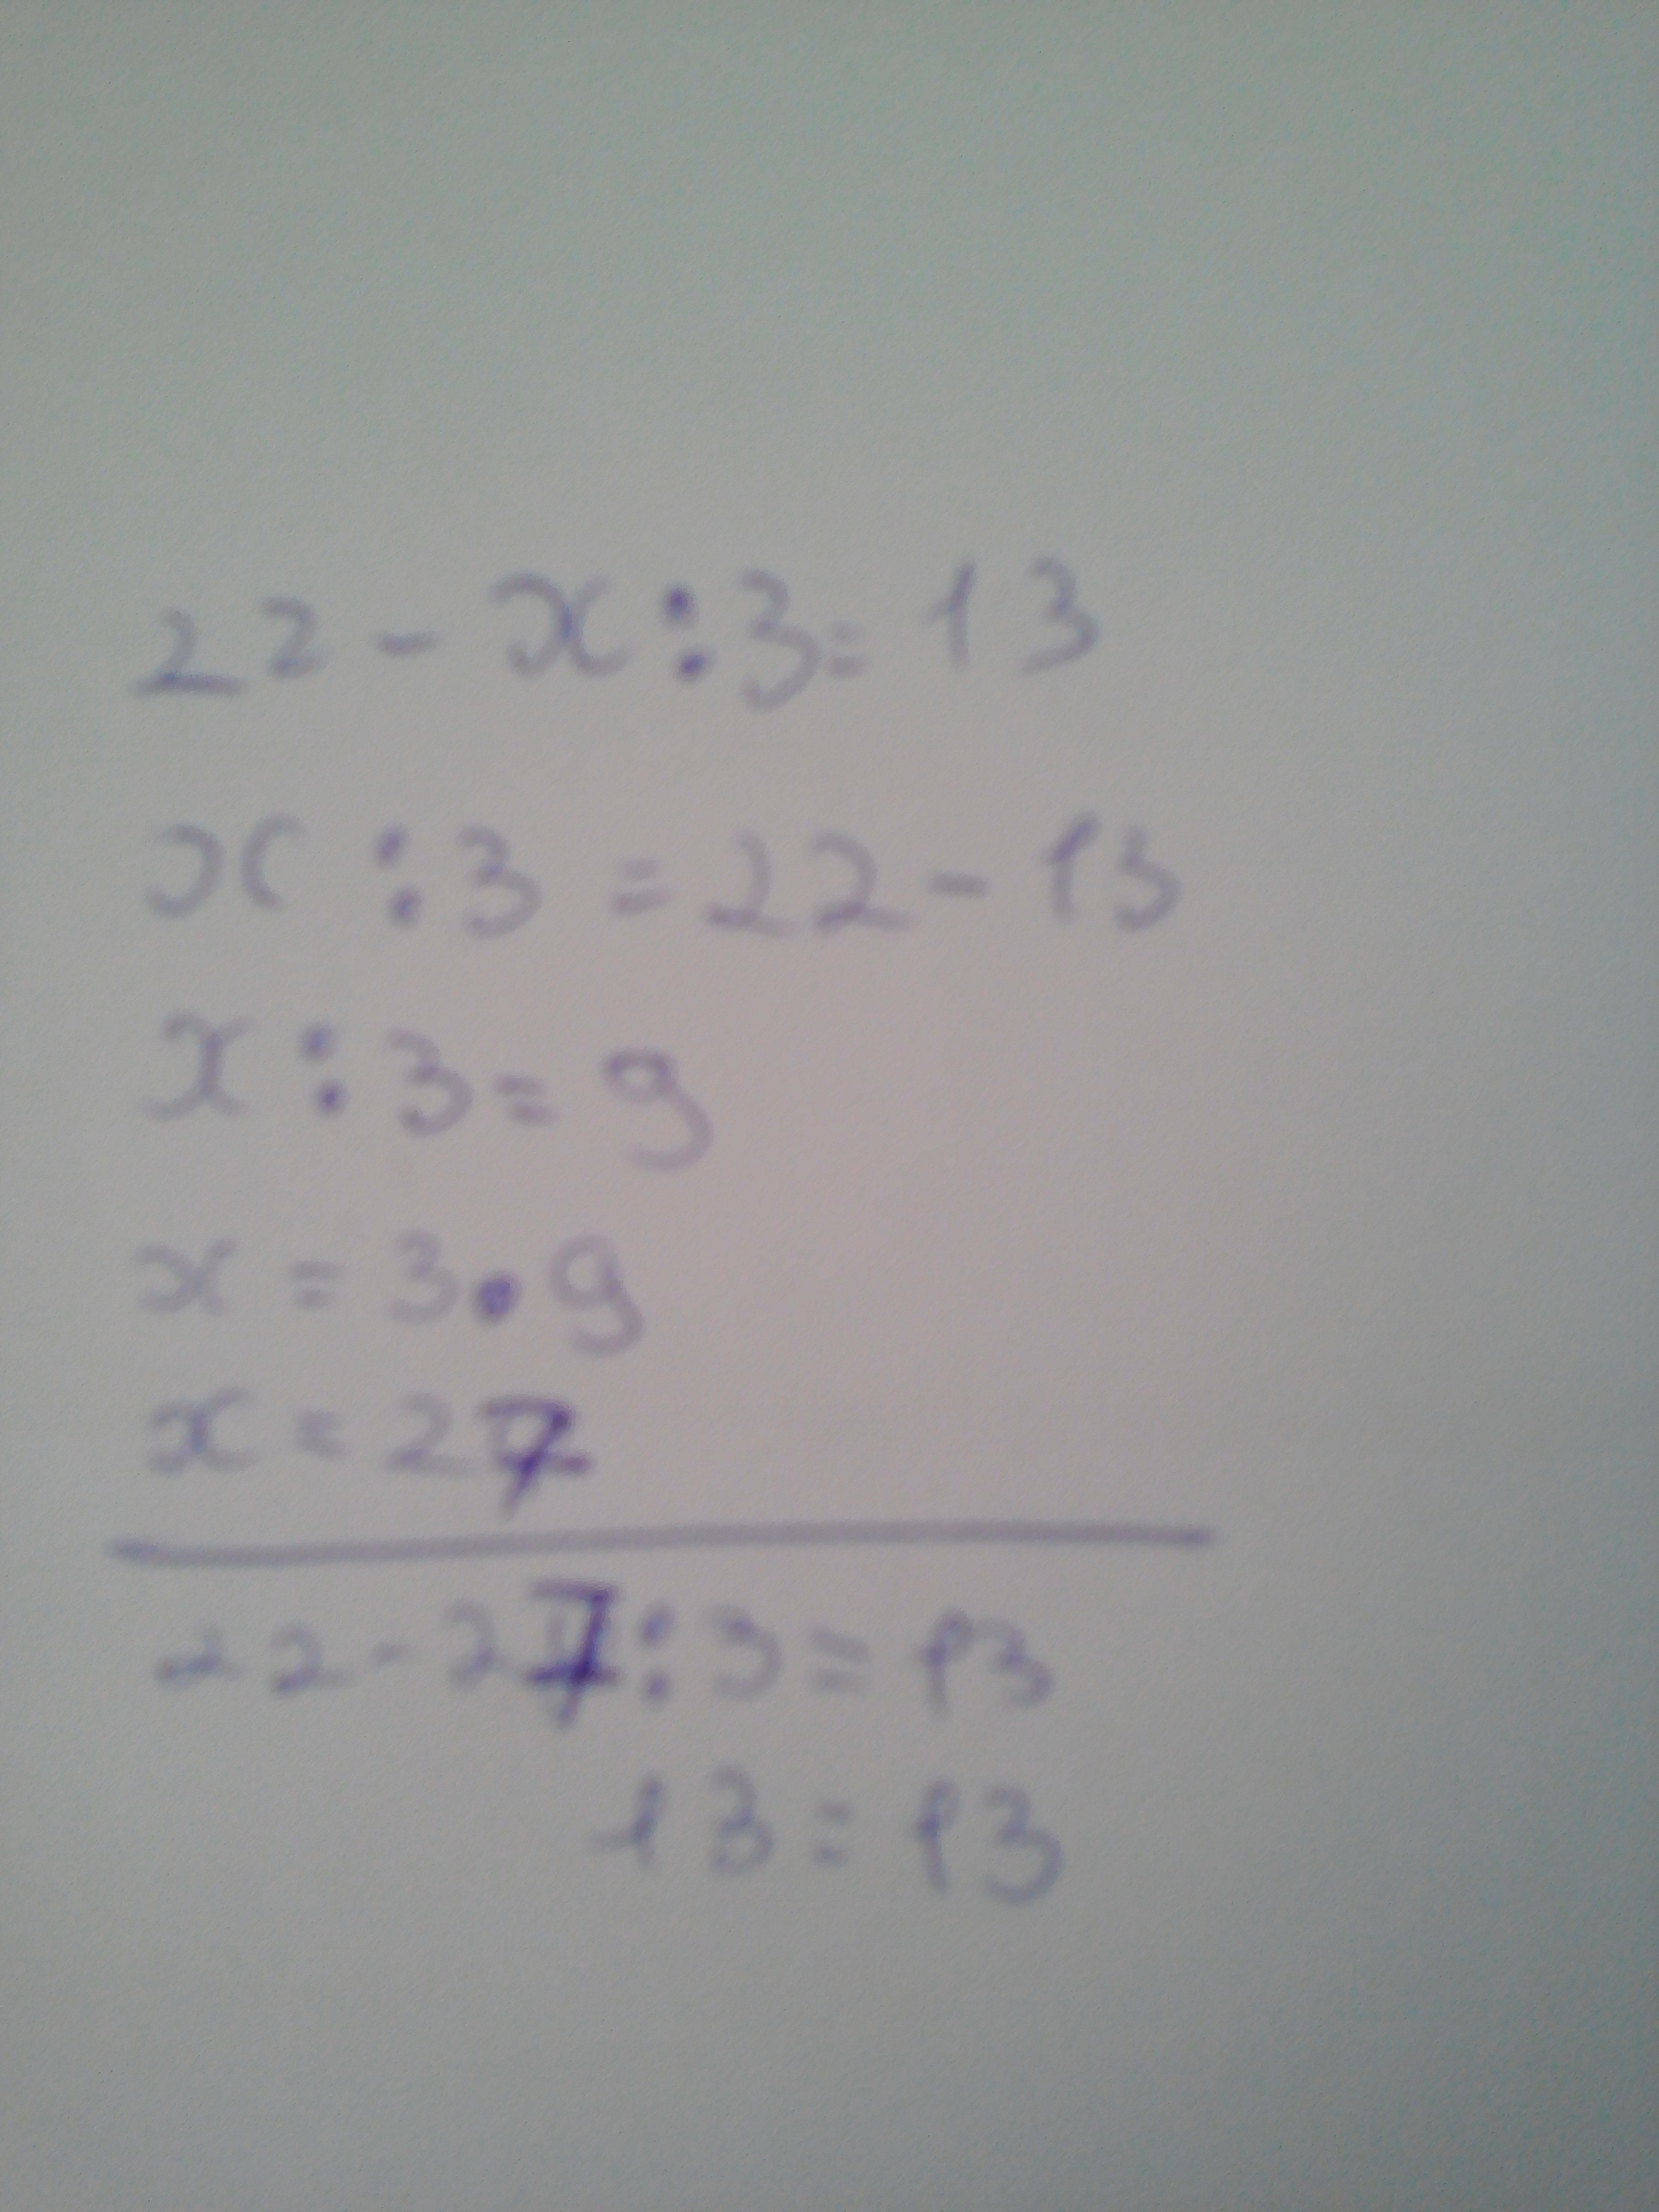 22 - x : 3 = 13
x : 3 = 22 - 13
x : 3 = 9
x = 3 • 9
x = 27
22 - 27 : 3 = 13
13 = 13